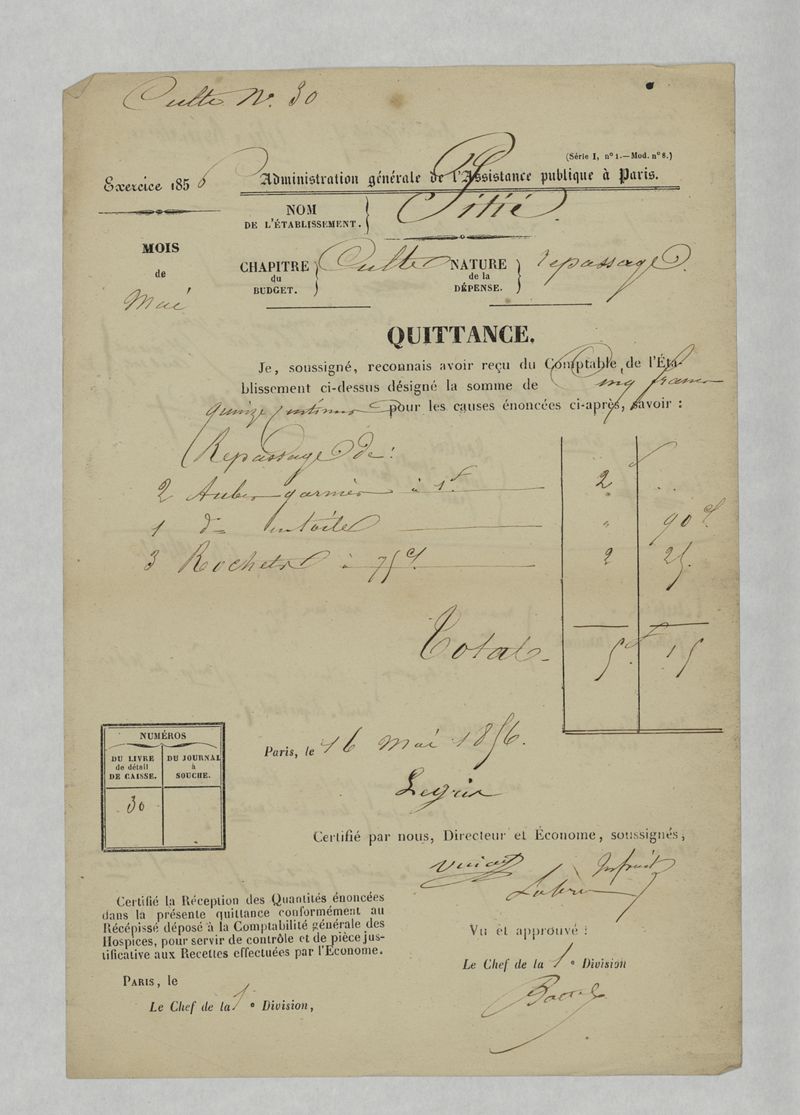 Culte N°. 30
(Série I, n° 1.—Mod. n° 8.)
Exercice 1856
Administration générale de l'Assistance publique à Paris.
NOM
DE L'ÉTABLISSEMENT.
Pitié
MOIS
de
Mai
CHAPITRE
du
BUDGET.
Culte
NATURE
de la
DÉPENSE.
repassage.
QUITTANCE.
Je, soussigné, reconnais avoir reçu du Comptable de l'Éta-
blissement ci-dessus désigné la somme de Cinq francs
quinze centimes pour les causes énoncées ci-après, savoir :
Repassage de :
2 Aubes garnies à 1f. 2f ..
1 do unitoile " 90c.
3 Rochets à 75c. 2 25.
Total. 5f. 15
NUMÉROS
DU LIVRE
de détail
DE CAISSE.
DU JOURNAL
à
SOUCHE.
30
Paris, le 16 Mai 1856.
Legris
Certifié par nous, Directeur et Économe, soussignés,
Certifié la Réception des Quantités énoncées
dans la présente quittance conformément au
Récépissé déposé à la Comptabilité générale des
Hospices, pour servir de contrôle et de pièce jus-
tificative aux Recettes effectuées par l'Économe.
PARIS, le
Le Chef de la 1e Division,
Vu et approuvé :
Le Chef de la 1e Division